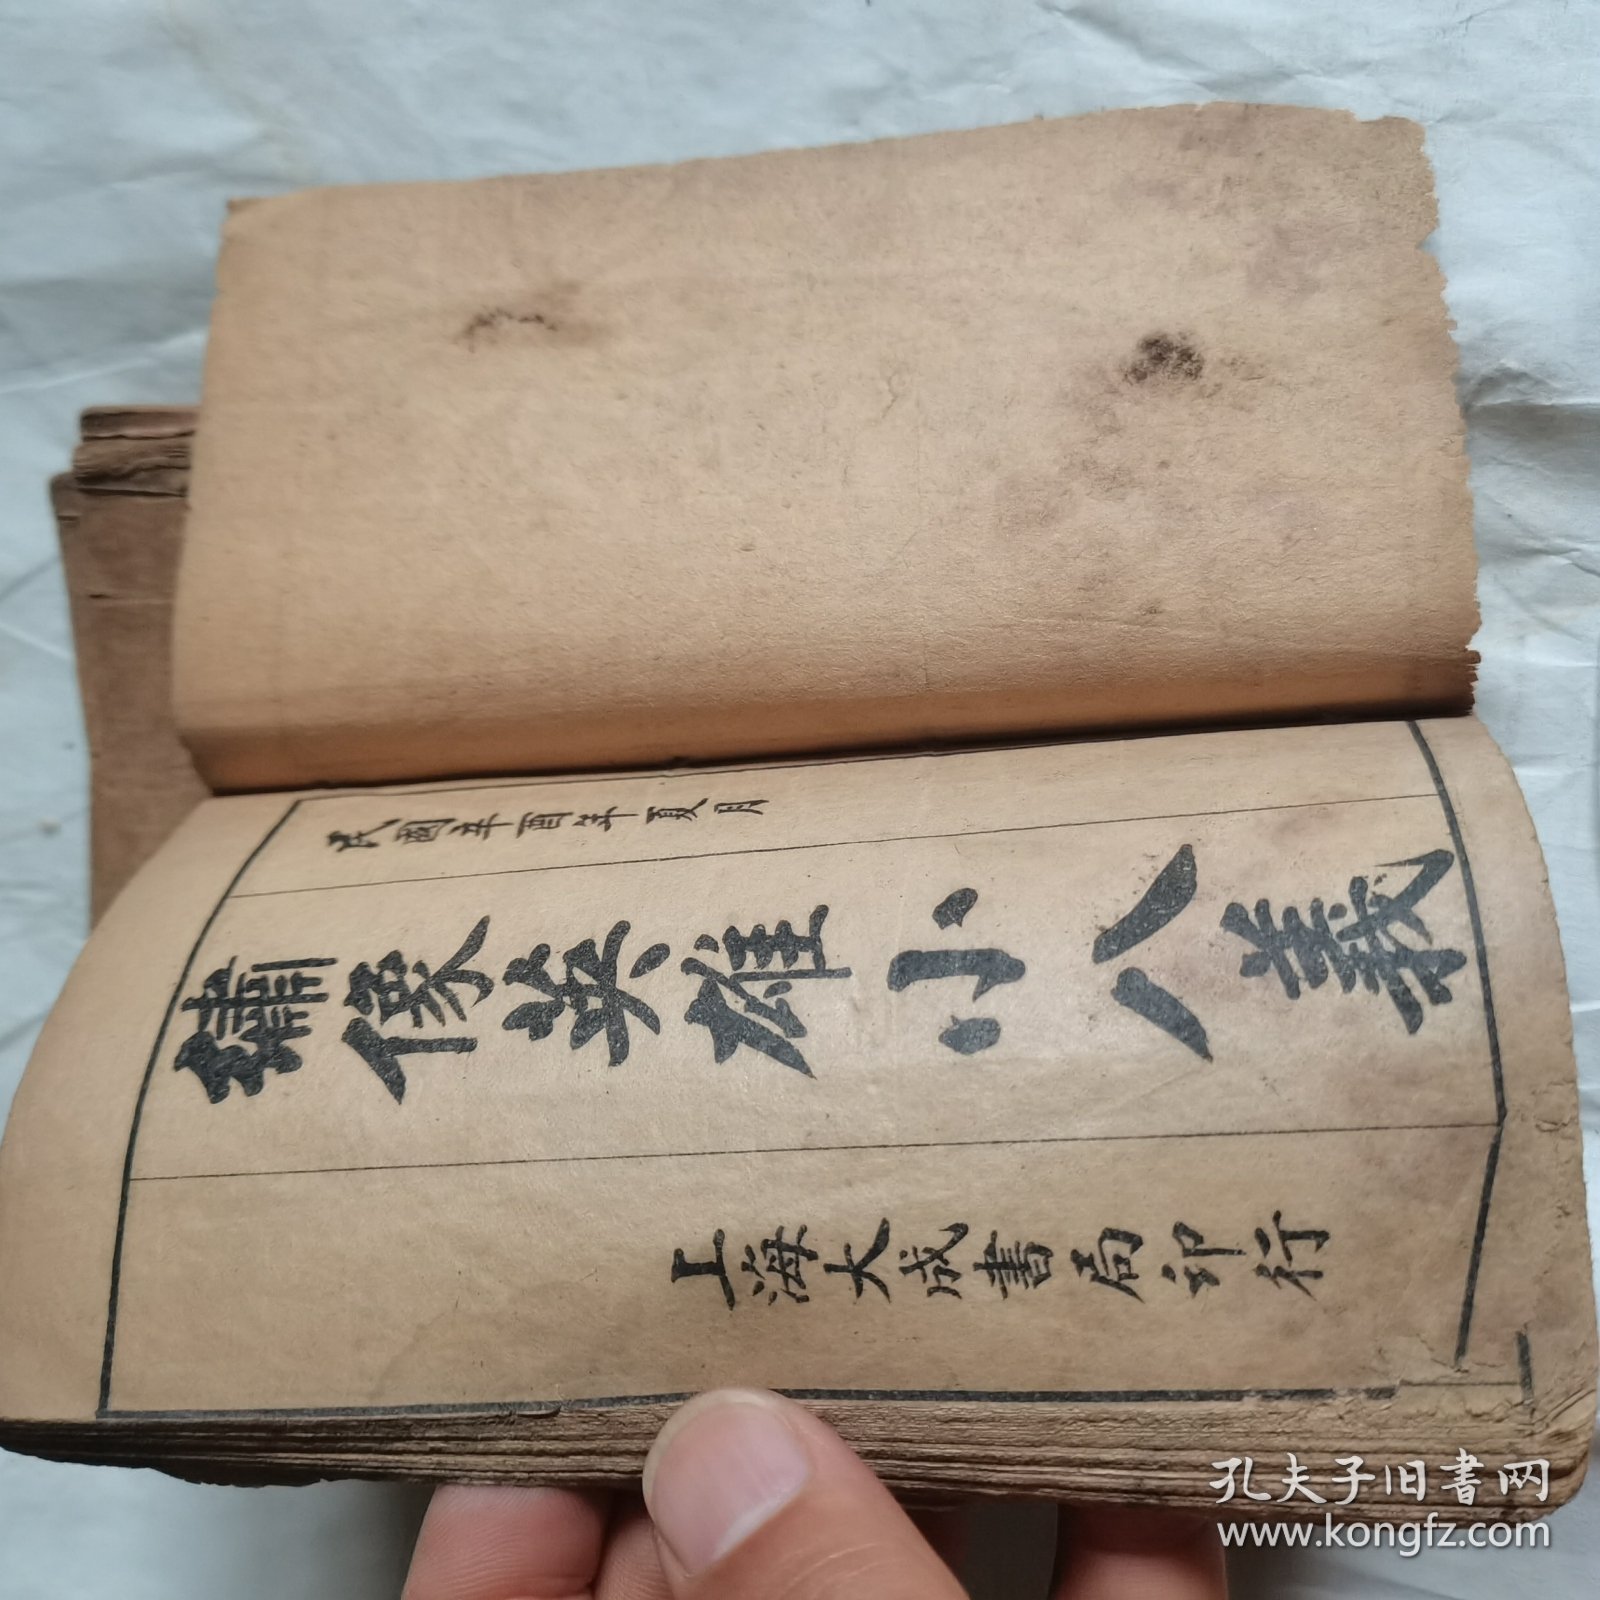 民國辛酉年夏月
繡像英雄小八義
上海大成書局印行
孔夫子旧書网
www.kongfz.com